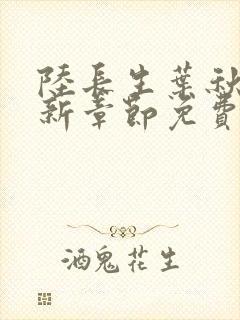 陸長生葉秋
新章節免費
酒鬼花生